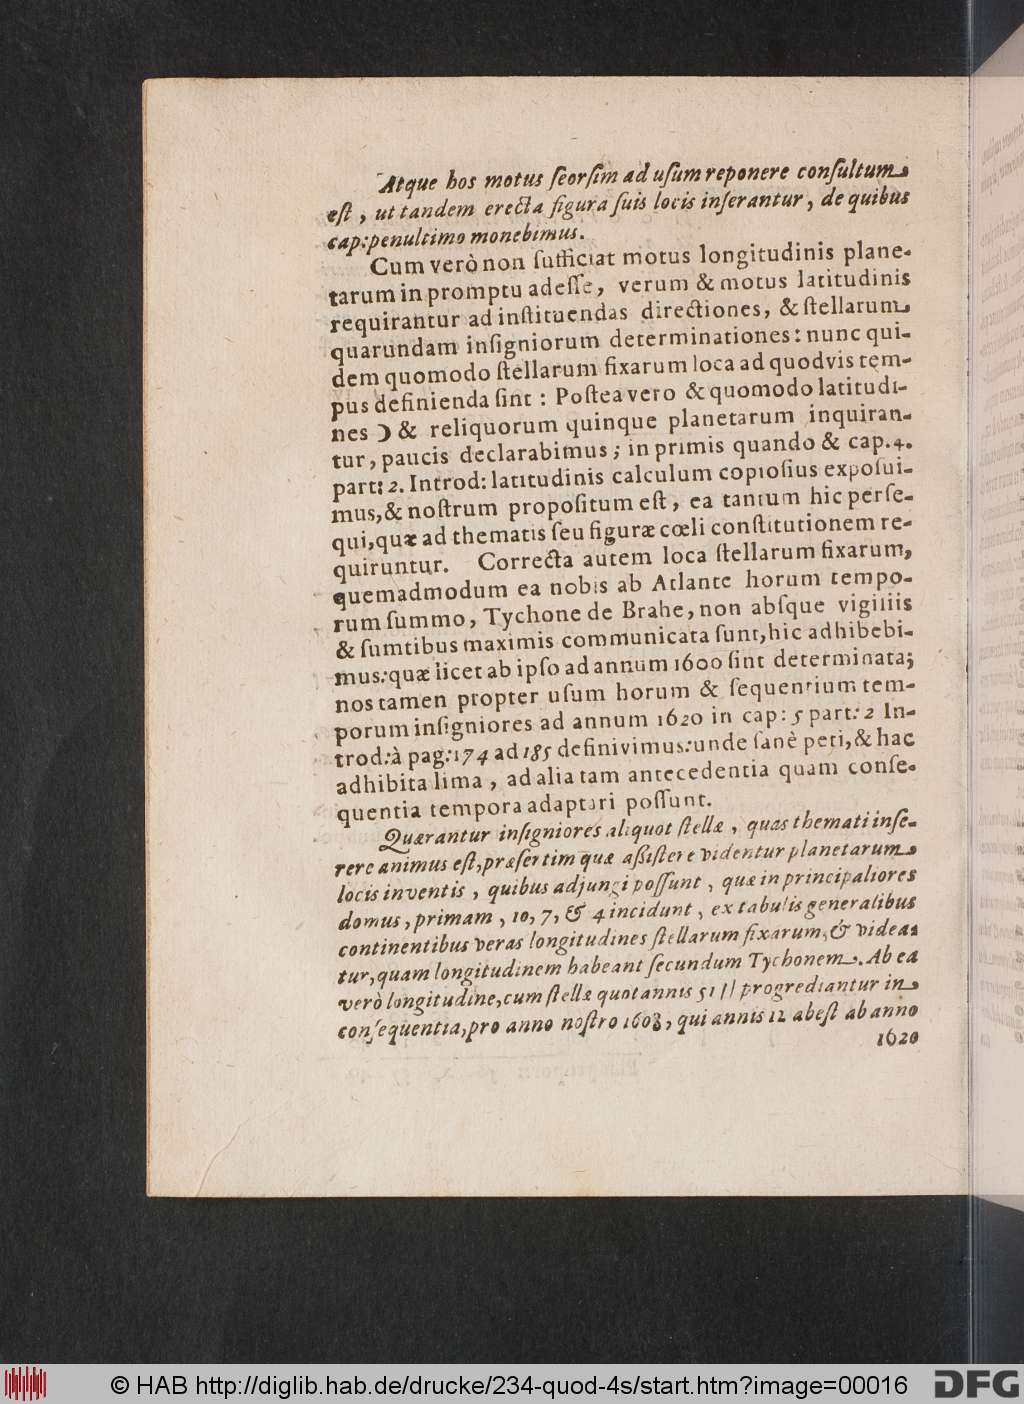 Atque hos motus ſeorſim ad uſum reponere conſultum
eſt, ut tandem erecta figura ſuis locis inſerantur, de quibus
cap: penultimo monebimus.
Cum verò non ſufficiat motus longitudinis plane-
tarum in promptu adeſſe, verum & motus latitudinis
requirantur ad inſtituendas directiones, & ſtellarum
quarundam inſigniorum determinationes: nunc qui-
dem quomodo ſtellarum fixarum loca ad quodvis tem-
pus definienda ſint: Poſtea vero & quomodo latitudi-
nes ☽ & reliquorum quinque planetarum inquiran-
tur, paucis declarabimus; in primis quando & cap. 4.
part: 2. Introd: latitudinis calculum copioſius expoſui-
mus, & noſtrum propoſitum eſt, ea tantum hic perſe-
qui, quæ ad thematis ſeu figuræ cœli conſtitutionem re-
quiruntur. Correcta autem loca ſtellarum fixarum,
quemadmodum ea nobis ab Atlante horum tempo-
rum ſummo, Tychone de Brahe, non abſque vigiliis
& ſumtibus maximis communicata ſunt, hic adhibebi-
mus: quæ licet ab ipſo ad annum 1600 ſint determinata;
nos tamen propter uſum horum & ſequentium tem-
porum inſigniores ad annum 1620 in cap: 5 part: 2 In-
trod: à pag: 174 ad 185 definivimus: unde ſanè peti, & hac
adhibita lima, ad alia tam antecedentia quam conſe-
quentia tempora adaptari poſſunt.
Quærantur inſigniores aliquot ſtellæ, quas themati inſe-
rere animus eſt, præſertim quæ aſſiſtere videntur planetarum
locis inventis, quibus adjungi poſſunt, quæ in principaliores
domus, primam, 10, 7, & 4 incidunt, ex tabulis generalibus
continentibus veras longitudines ſtellarum fixarum, & videa-
tur, quam longitudinem habeant ſecundum Tychonem. Ab ea
verò longitudine, cum ſtellæ quotannis 51 // progrediantur in
conſequentia, pro anno noſtro 1608, qui annis 12 abeſt ab anno
1620
© HAB http://diglib.hab.de/drucke/234-quod-4s/start.htm?image=00016
DFG